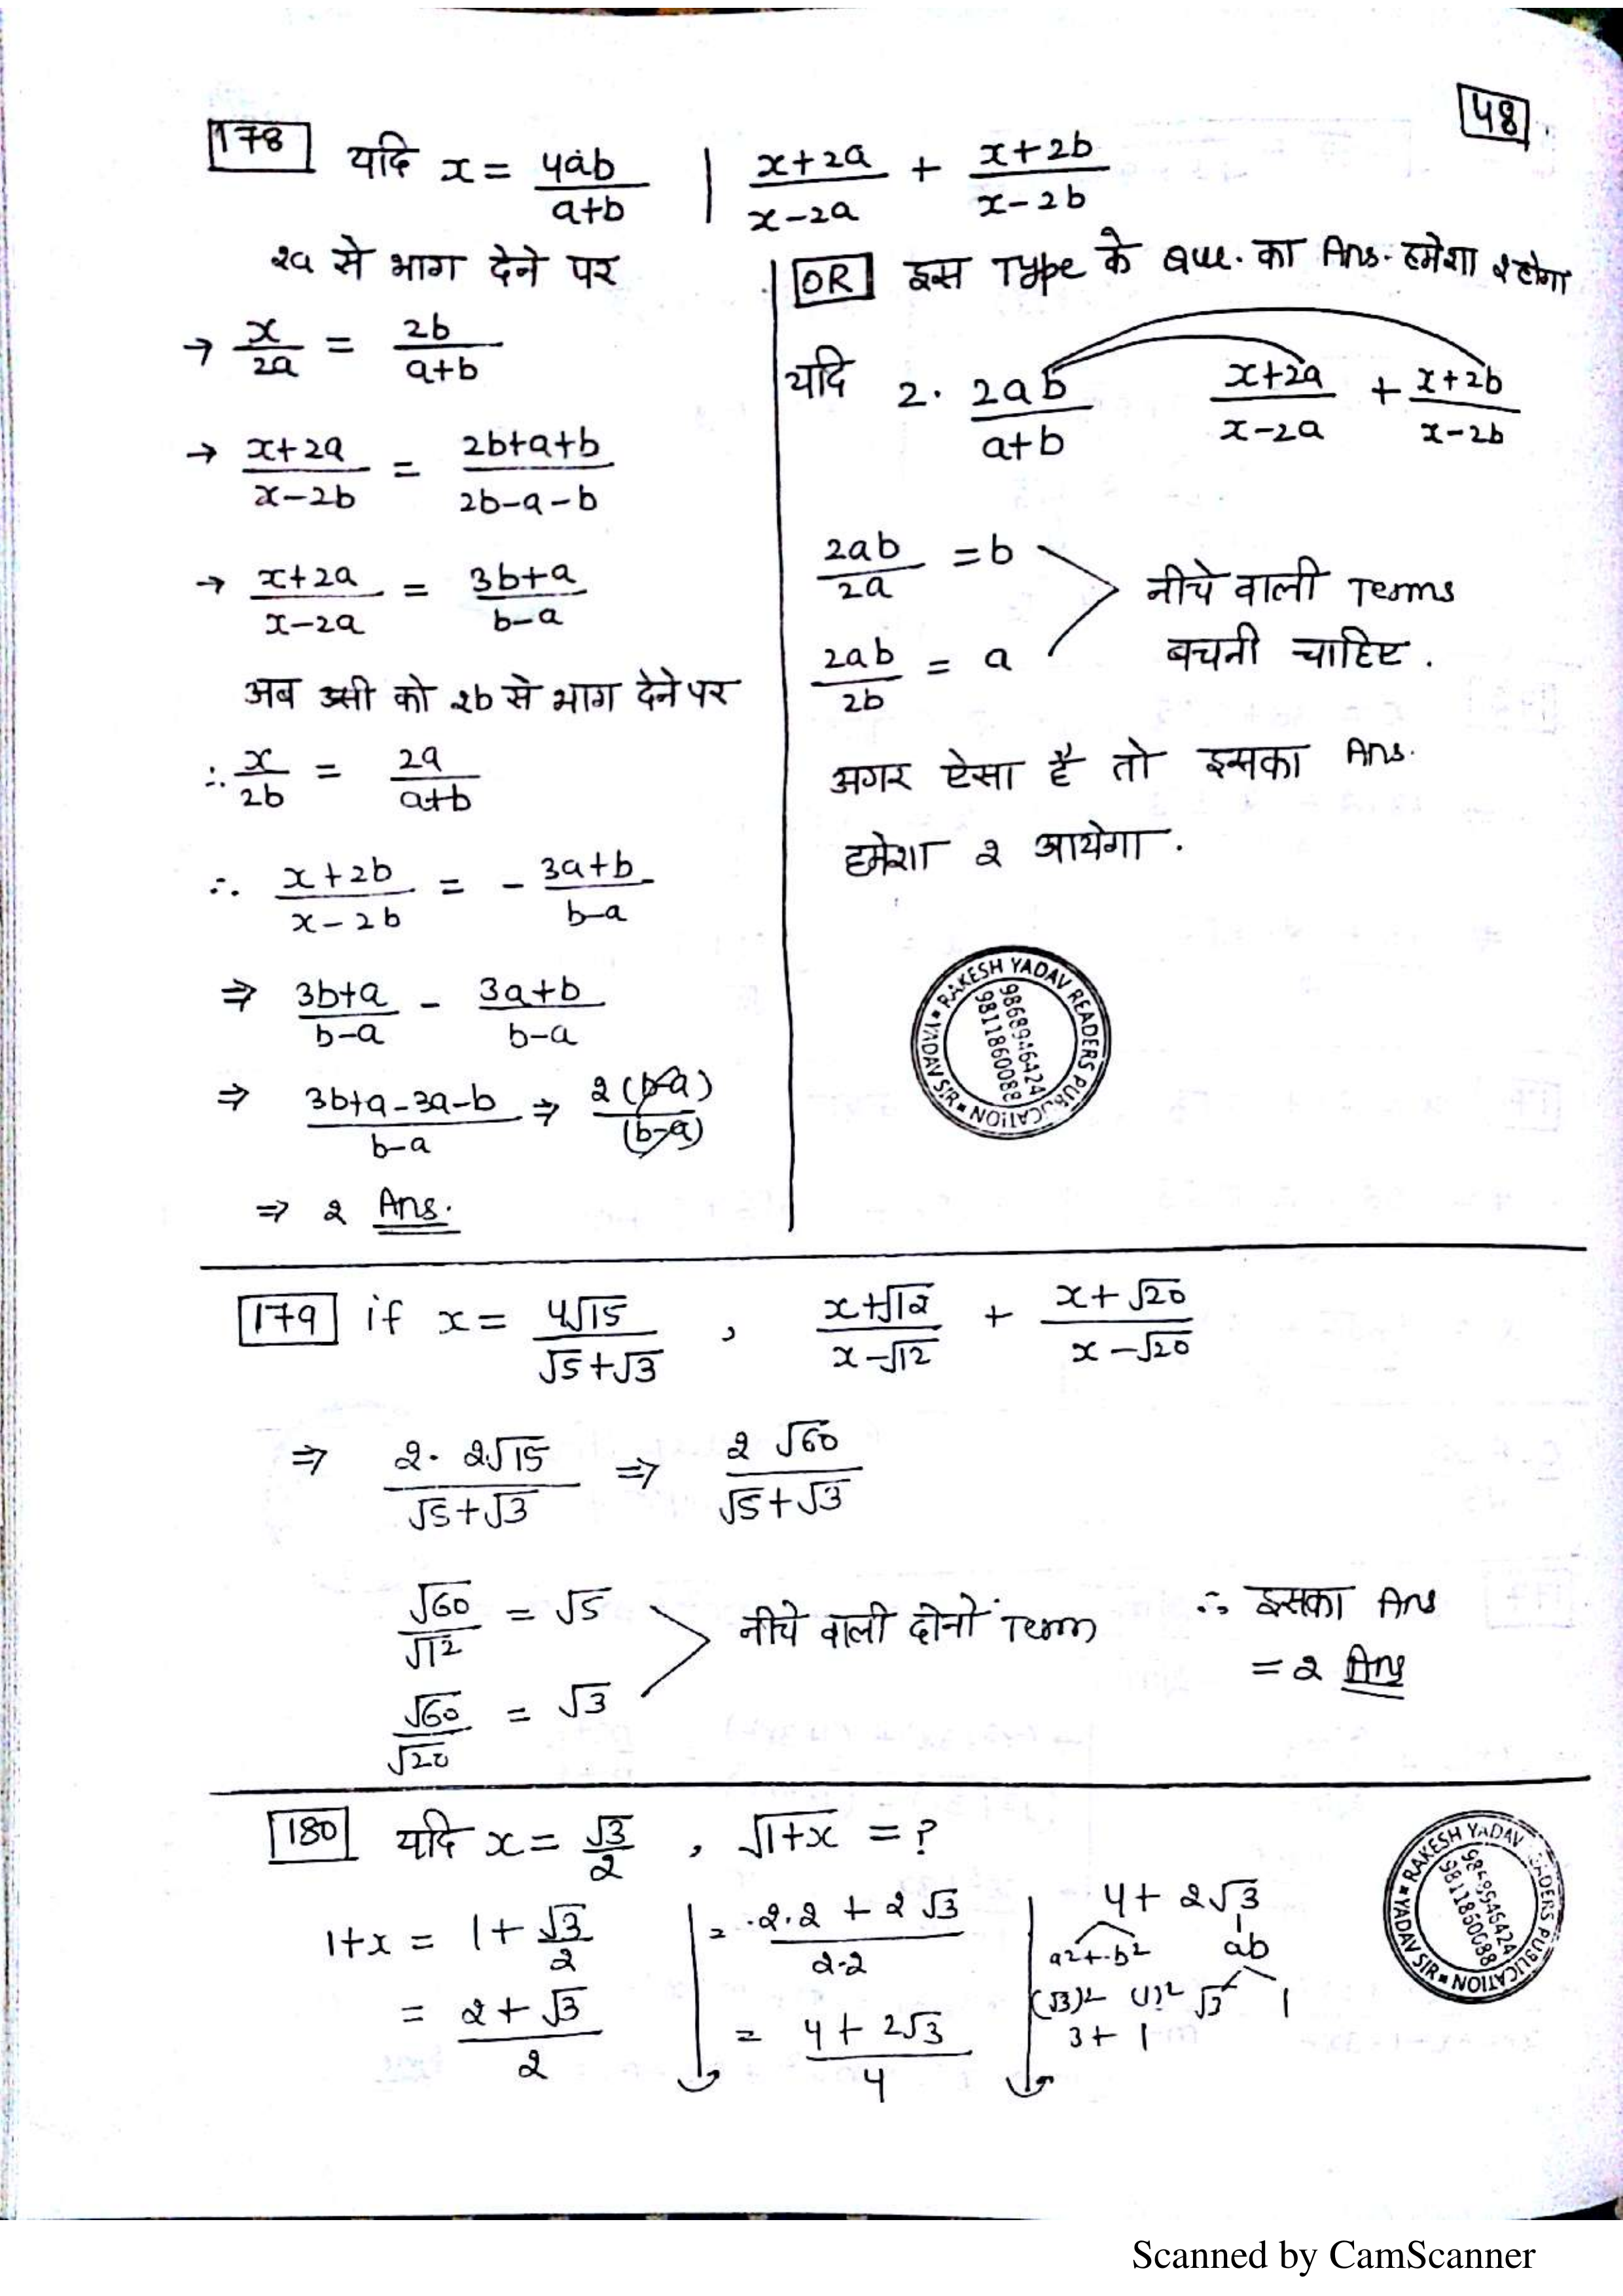 48
178 यदि x = 4ab/(a+b) | (x+2a)/(x-2a) + (x+2b)/(x-2b)
2a से भाग देने पर
→ x/2a = 2b/(a+b)
→ (x+2a)/(x-2b) = (2b+a+b)/(2b-a-b)
→ (x+2a)/(x-2a) = (3b+a)/(b-a)
अब उसी को 2b से भाग देने पर
∴ x/2b = 2a/(a+b)
∴ (x+2b)/(x-2b) = - (3a+b)/(b-a)
⇒ (3b+a)/(b-a) - (3a+b)/(b-a)
⇒ (3b+a-3a-b)/(b-a) ⇒ 2(b-a)/(b-a)
⇒ 2 Ans.
OR इस Type के Que. का Ans. हमेशा 2 होगा
यदि 2. 2ab/(a+b) (x+2a)/(x-2a) + (x+2b)/(x-2b)
2ab/2a = b
2ab/2b = a
नीचे वाली Terms
बचनी चाहिए.
अगर ऐसा है तो इसका Ans.
हमेशा 2 आयेगा.
RAKESH YADAV READERS PUBLICATION YADAV SIR
9868946424
9811860088
179 if x = 4√15/(√5+√3) , (x+√12)/(x-√12) + (x+√20)/(x-√20)
⇒ 2. 2√15/(√5+√3) ⇒ 2√60/(√5+√3)
√60/√12 = √5
√60/√20 = √3
नीचे वाली दोनों Term
∴ इसका Ans
= 2 Ans
180 यदि x = √3/2 , √(1+x) = ?
1+x = 1+√3/2
= (2+√3)/2
= (2.2 + 2√3)/(2.2)
= (4+2√3)/4
4+ 2√3
a²+b² ab
(√3)² (1)² √3 1
3+1
RAKESH YADAV READERS PUBLICATION YADAV SIR
9868946424
9811860088
Scanned by CamScanner